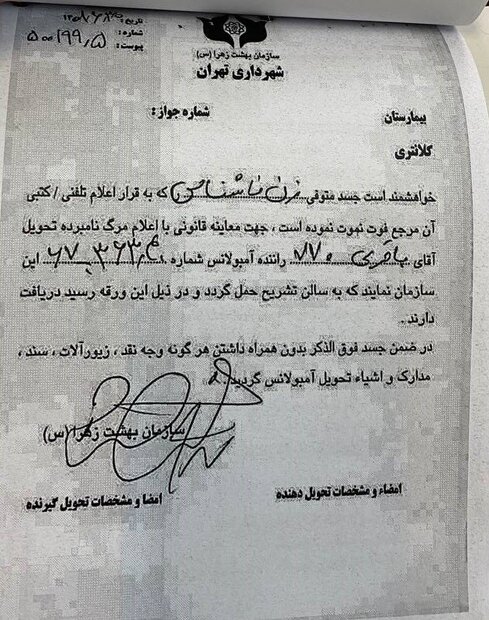 تاریخ:
شماره:
پیوست: ۵۰۱۹۹٫۵
سازمان بهشت زهرا (س)
شهرداری تهران
بیمارستان
شماره جواز:
کلانتری
خواهشمند است جسد متوفی زن ناشناس که به قرار اعلام تلفنی / کتبی
آن مرجع فوت نموت نموده است ، جهت معاینه قانونی با اعلام مرگ نامبرده تحویل
آقای باقری ۷۷۰ راننده آمبولانس شماره این
سازمان نمایند که به سالن تشریح حمل گردد و در ذیل این ورقه رسید دریافت
دارند .
در ضمن جسد فوق الذکر بدون همراه داشتن هر گونه وجه نقد ، زیورآلات ، سند ،
مدارک و اشیاء تحویل آمبولانس گردید .
سازمان بهشت زهرا (س)
امضاء و مشخصات تحویل دهنده
امضا و مشخصات تحویل گیرنده